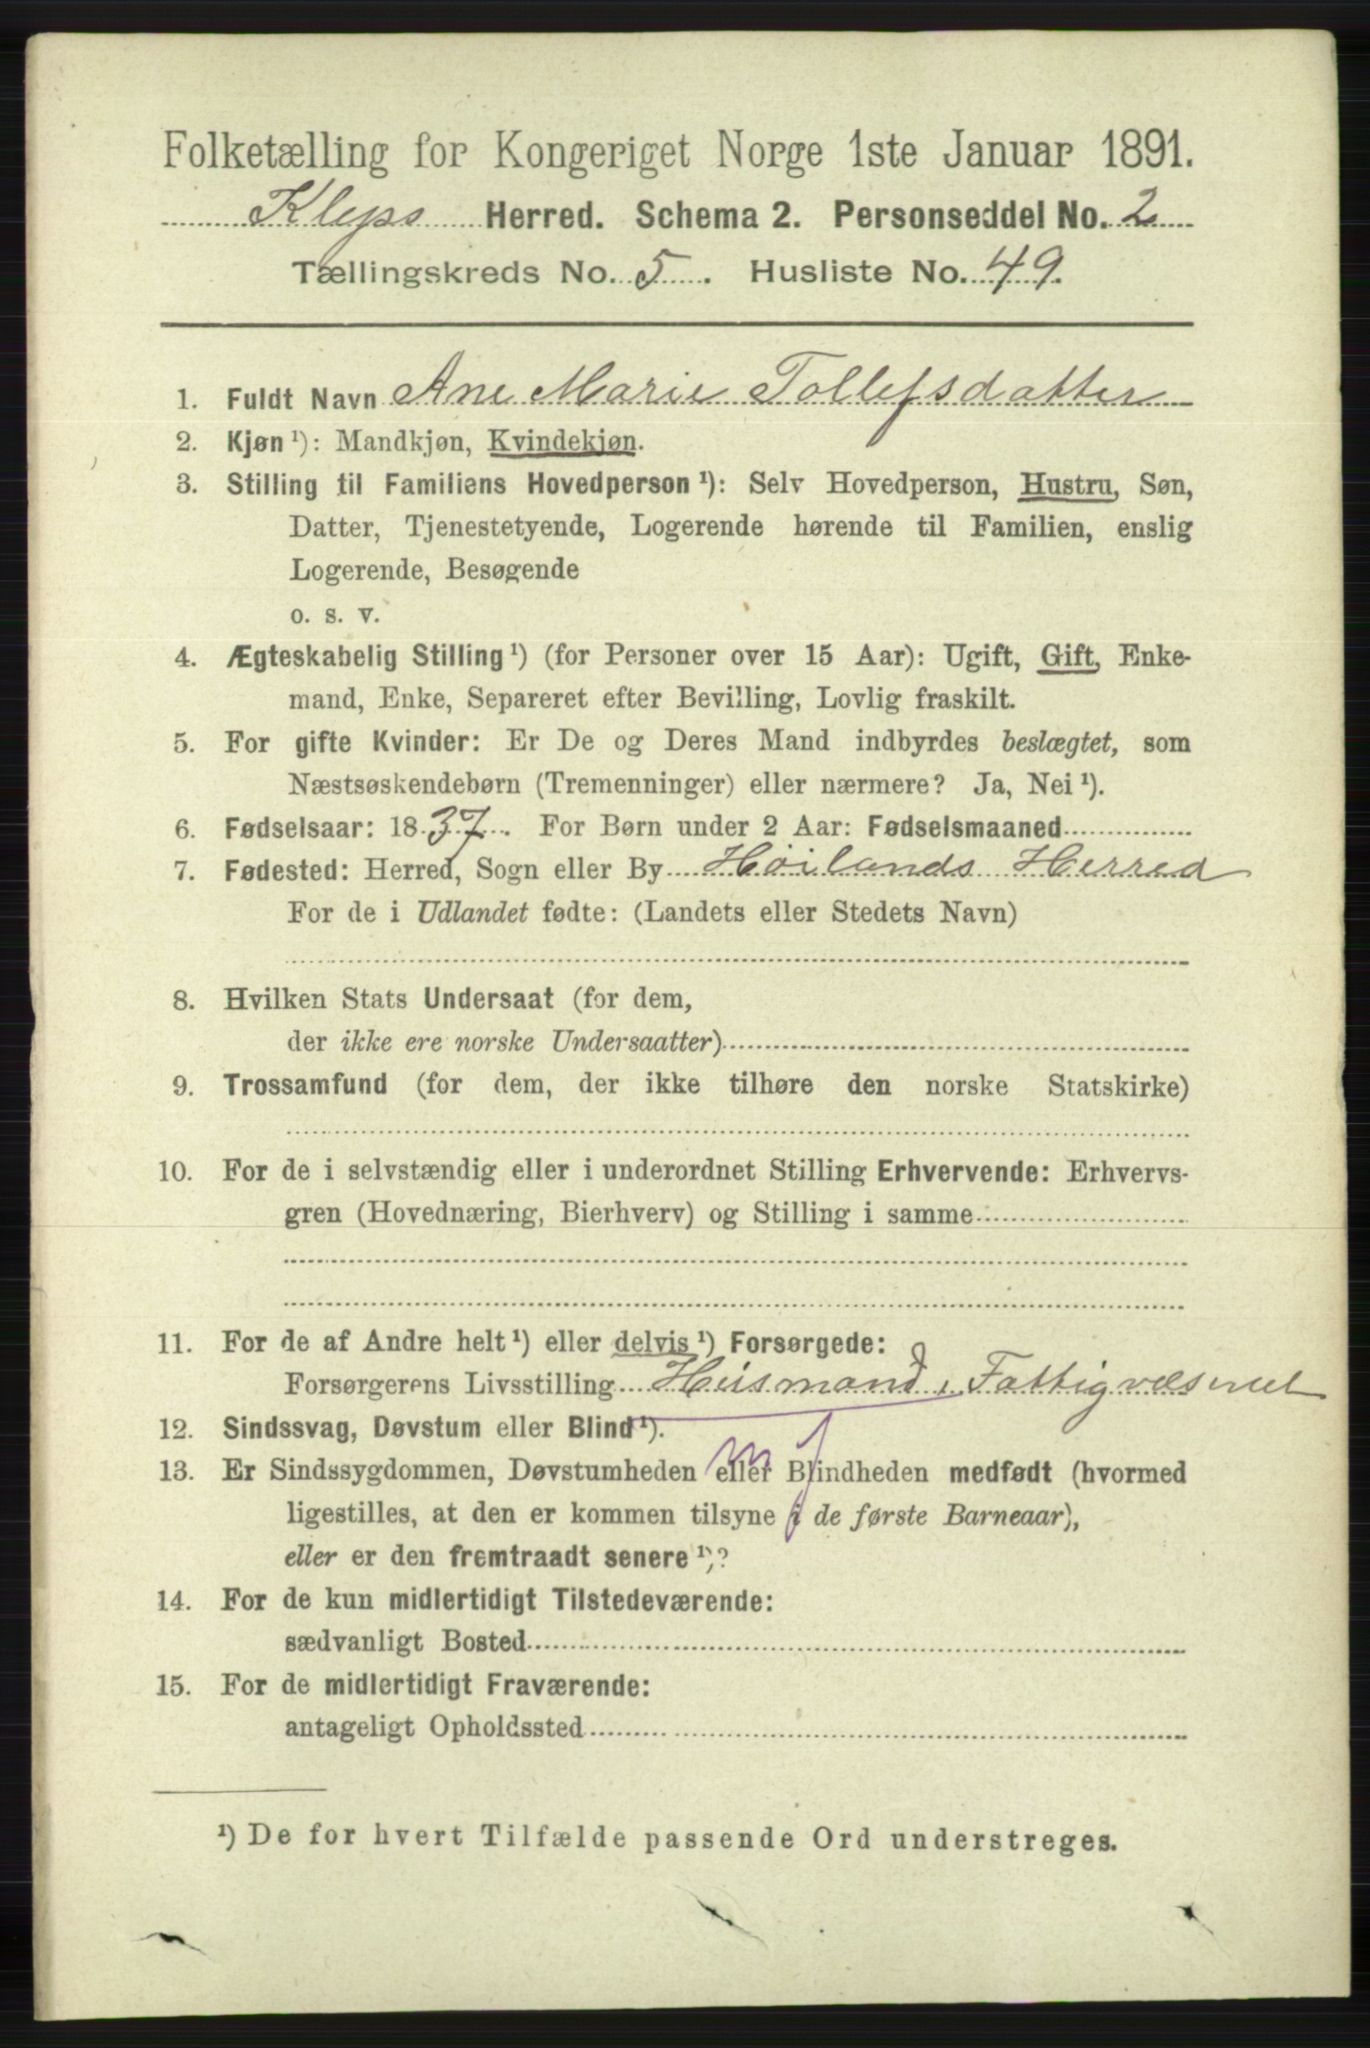 Folketælling for Kongeriget Norge 1ste Januar 1891.
Kleps Herred. Schema 2. Personseddel No. 2
Tællingskreds No. 5. Husliste No. 49.
1. Fuldt Navn Ane Marie Tollefsdatter
2. Kjøn ¹): Mandkjøn, Kvindekjøn.
3. Stilling til Familiens Hovedperson ¹): Selv Hovedperson, Hustru, Søn,
Datter, Tjenestetyende, Logerende hørende til Familien, enslig
Logerende, Besøgende
o. s. v.
4. Ægteskabelig Stilling ¹) (for Personer over 15 Aar): Ugift, Gift, Enke-
mand, Enke, Separeret efter Bevilling, Lovlig fraskilt.
5. For gifte Kvinder: Er De og Deres Mand indbyrdes beslægtet, som
Næstsøskendebørn (Tremenninger) eller nærmere? Ja, Nei ¹).
6. Fødselsaar: 1837. For Børn under 2 Aar: Fødselsmaaned
7. Fødested: Herred, Sogn eller By Höilands Herred
For de i Udlandet fødte: (Landets eller Stedets Navn)
8. Hvilken Stats Undersaat (for dem,
der ikke ere norske Undersaatter)
9. Trossamfund (for dem, der ikke tilhøre den norske Statskirke)
10. For de i selvstændig eller i underordnet Stilling Erhvervende: Erhvervs-
gren (Hovednæring, Bierhverv) og Stilling i samme
11. For de af Andre helt ¹) eller delvis ¹) Forsørgede:
Forsørgerens Livsstilling Husmand, Fattigvæsenet
12. Sindssvag, Døvstum eller Blind ¹).
13. Er Sindssygdommen, Døvstumheden eller Blindheden medfødt (hvormed
ligestilles, at den er kommen tilsyne i de første Barneaar),
eller er den fremtraadt senere ¹)?
14. For de kun midlertidigt Tilstedeværende:
sædvanligt Bosted
15. For de midlertidigt Fraværende:
antageligt Opholdssted
¹) De for hvert Tilfælde passende Ord understreges.